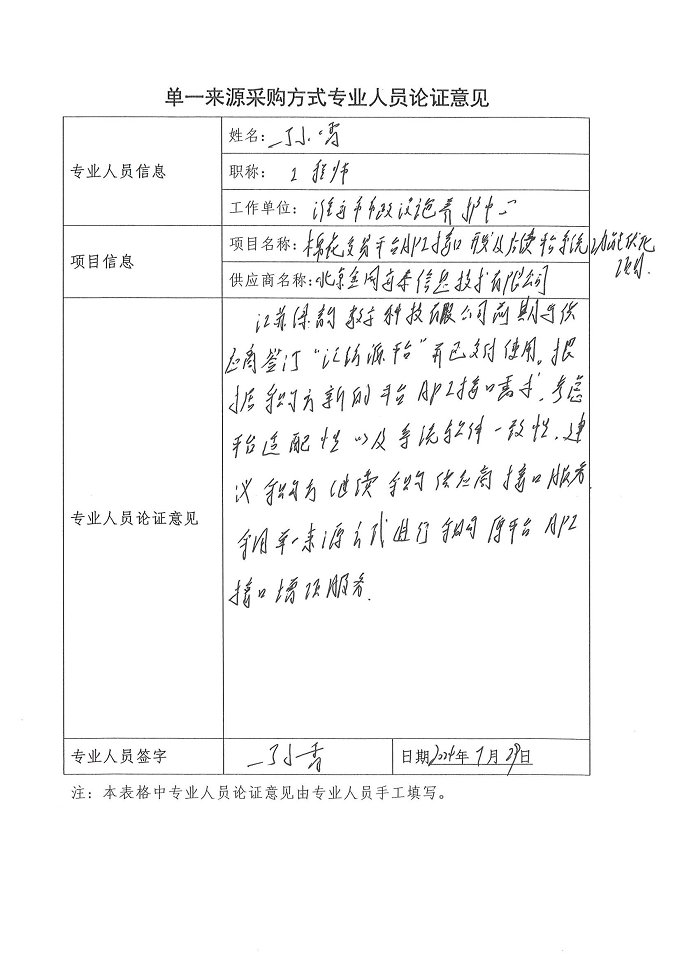 单一来源采购方式专业人员论证意见
专业人员信息
姓名：丁小
职称：工程师
工作单位：淮安市市政设施养护中心
项目信息
项目名称：棉花交易平台API接口开发及后续系统功能优化
项目.
供应商名称：北京金网安泰信息技术有限公司
专业人员论证意见
江苏 数字科技有限公司前期与供
应商签订“ 平台”并已交付使用。根
据采购方新的平台API接口需求，考虑
平台适配性以及系统软件一致性，建
议采购方继续采购供应商接口服务，
采用单一来源方式进行采购原平台API
接口增项服务.
专业人员签字
丁小
日期2024年7月29日
注：本表格中专业人员论证意见由专业人员手工填写。